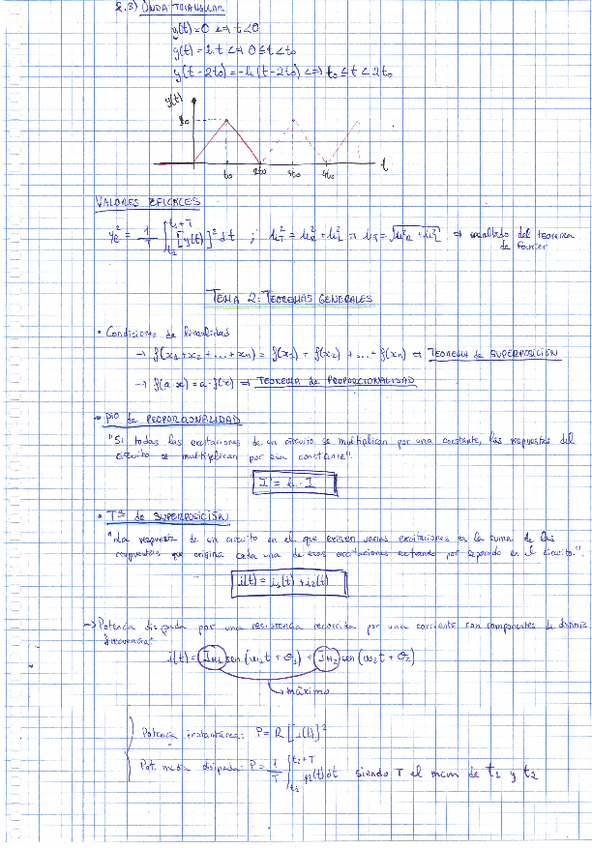 2.3) ONDA TRIANGULAR
y(t)=0 ⇔ t<0
y(t)= k·t ⇔ 0≤t<t₀
y(t-2t₀)=-k(t-2t₀) ⇔ t₀≤t<2t₀
y(t)
t₀ 2t₀ 4t₀
t
VALORES EFICACES
Ye² = 1/T ∫ t₁+T t₁ [y(t)]² dt ; ⇒ resultado del teorema
de Fourier
TEMA 2: TEOREMAS GENERALES
• Condiciones de linealidad
→ f(x₁+x₂+...+xn) = f(x₁) + f(x₂) + ... + f(xn) ⇒ TEOREMA de SUPERPOSICIÓN
→ f(a·x)=a·f(x) ⇒ TEOREMA de PROPORCIONALIDAD
• PIO de PROPORCIONALIDAD
"Si todas las excitaciones de un circuito se multiplican por una constante, las respuestas del
circuito se multiplican por esa constante".
I' = k · I
• Tª de SUPERPOSICIÓN
"La respuesta de un circuito en el que existen varias excitaciones es la suma de las
respuestas que origina cada una de esas excitaciones actuando por separado en el circuito."
i(t) = i₁(t) + i₂(t)
→ Potencia disipada por una resistencia recorrida por una corriente con componentes de distinta
frecuencia:
i(t) = IM₁ sen(ω₁t + θ₁) + IM₂ sen(ω₂t + θ₂)
→ máximo
Potencia instantánea: P = R [i(t)]²
Pot. media disipada: P = 1/T ∫ t₁+T t₁ p(t)dt siendo T el mcm de t₁ y t₂